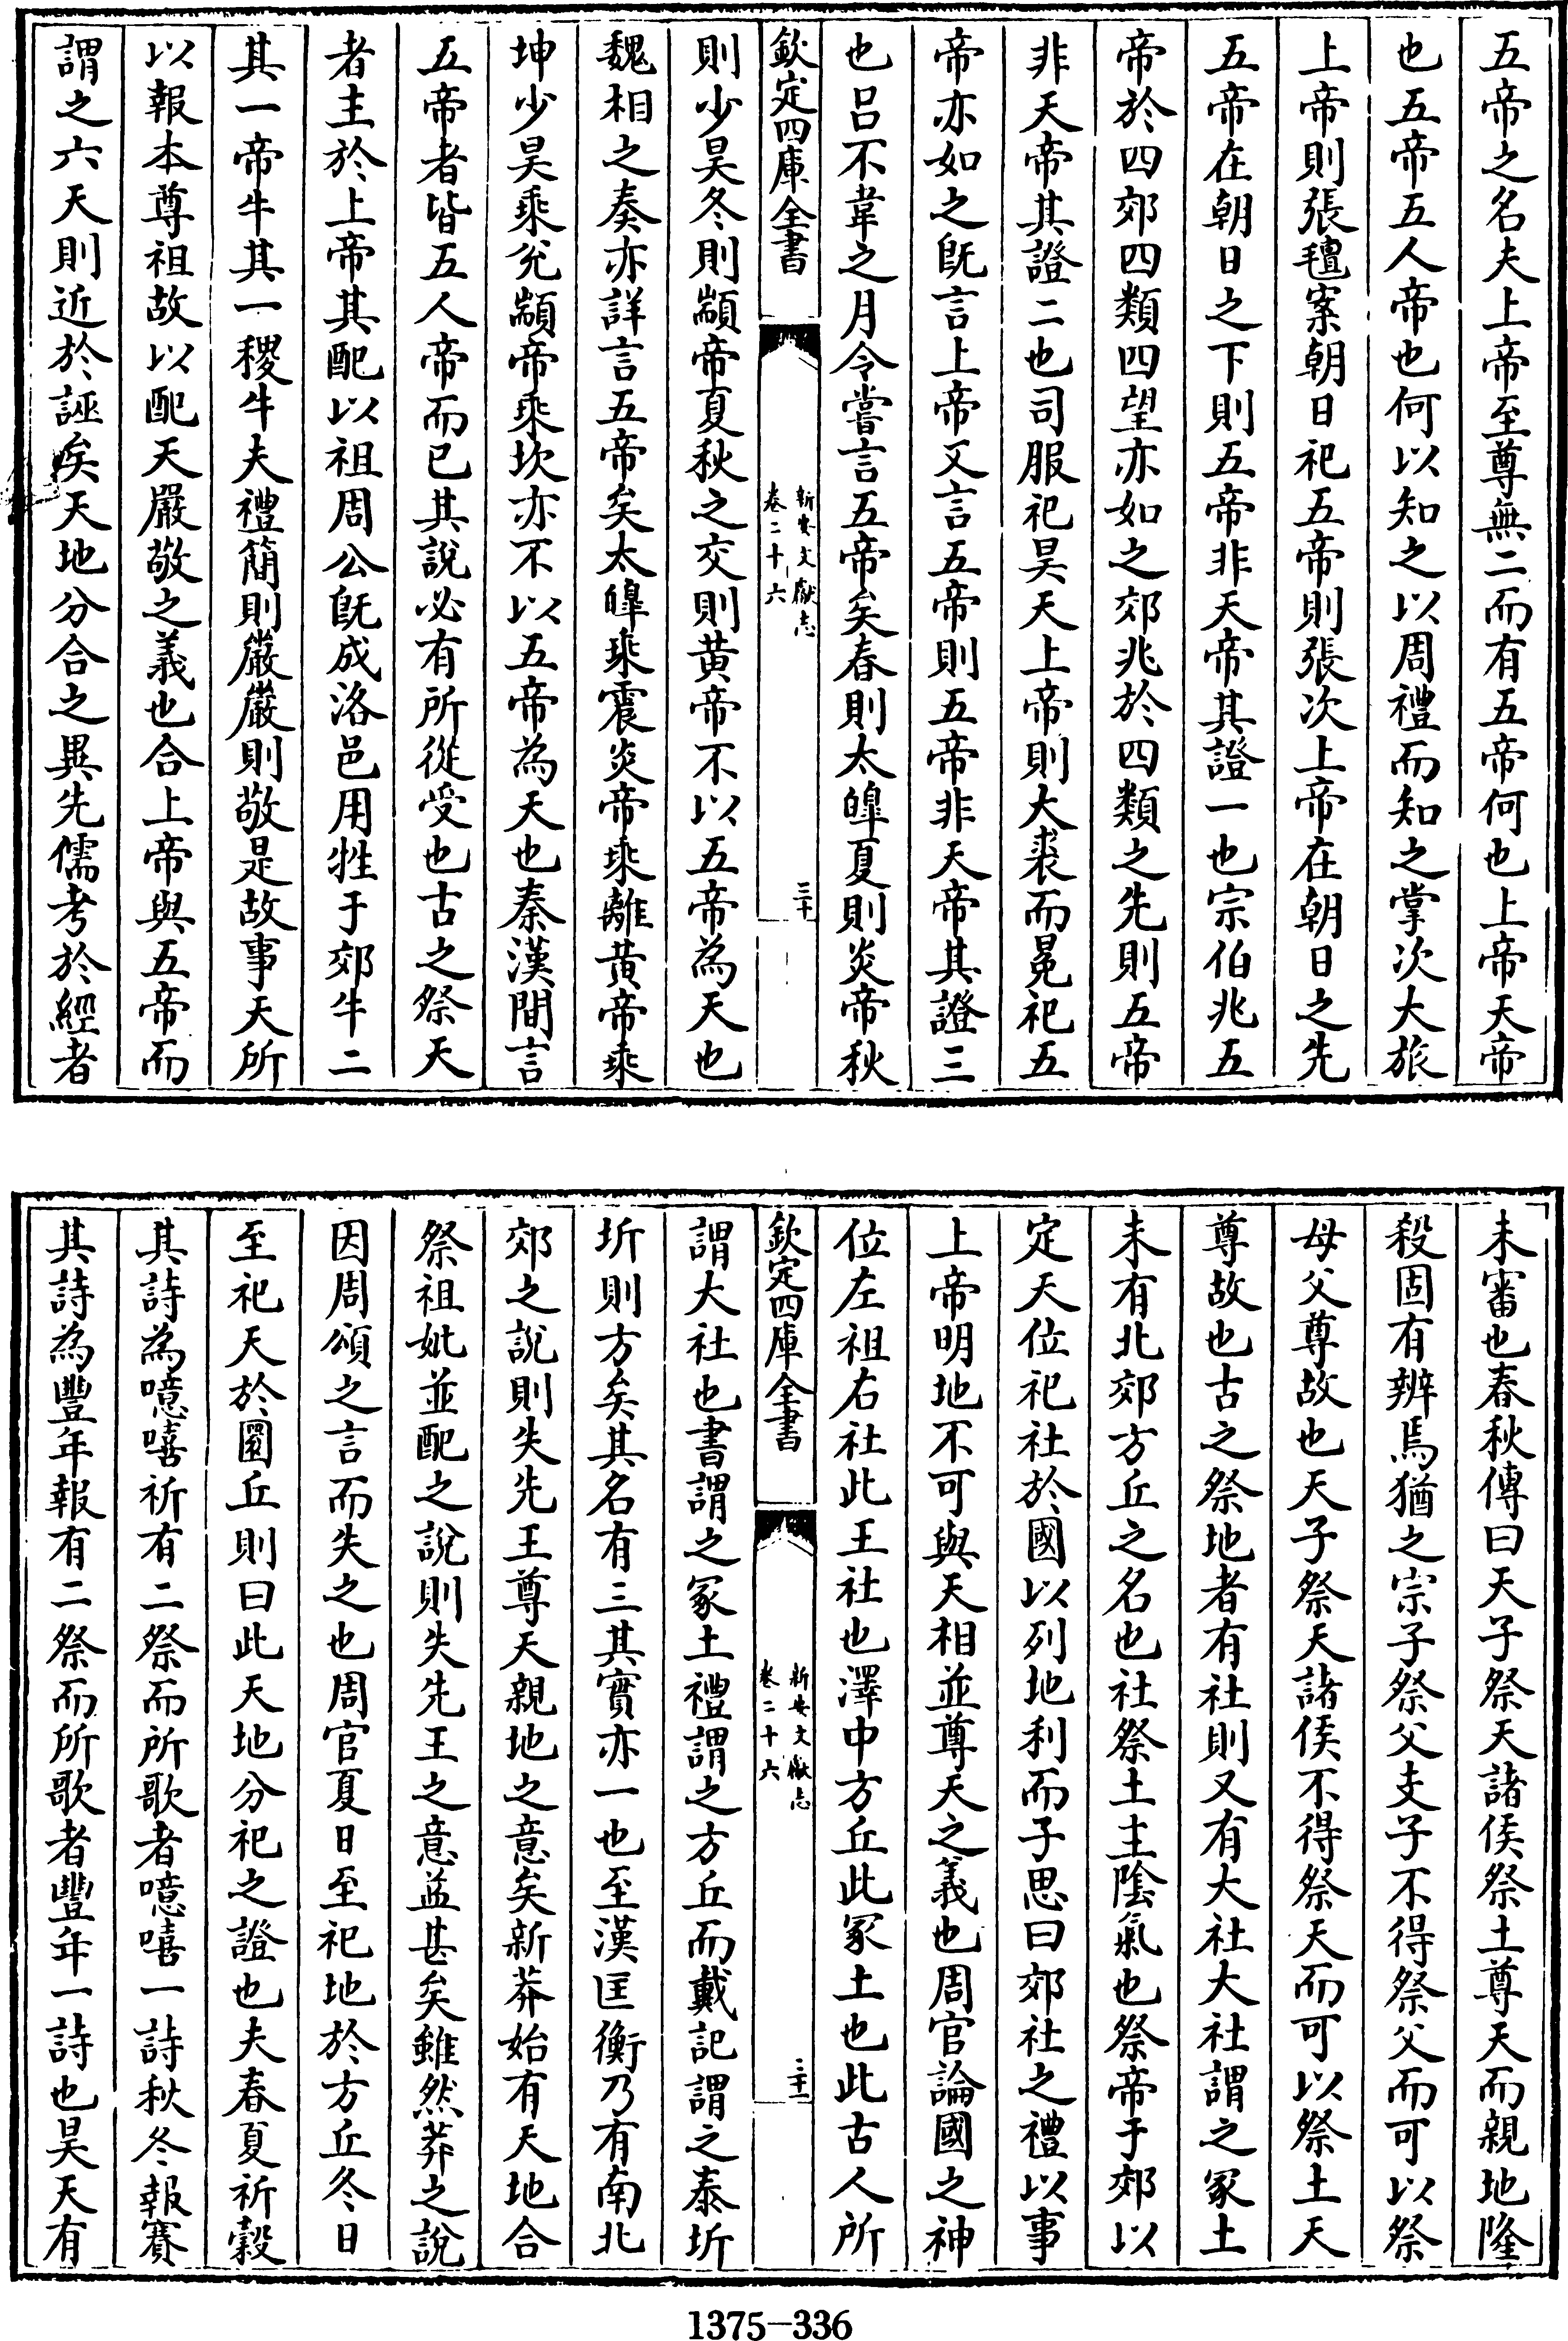 五帝之名夫上帝至尊無二而有五帝何也上帝天帝
也五帝五人帝也何以知之以周禮而知之掌次大旅
上帝則張氊案朝日祀五帝則張次上帝在朝日之先
五帝在朝日之下則五帝非天帝其證一也宗伯兆五
帝於四郊四類四望亦如之郊兆於四類之先則五帝
非天帝其證二也司服祀昊天上帝則大裘而冕祀五
帝亦如之既言上帝又言五帝則五帝非天帝其證三
也呂不韋之月令嘗言五帝矣春則太皥夏則炎帝秋
欽定四庫全書
新安文獻志
卷二十六
三十
則少昊冬則顓帝夏秋之交則黃帝不以五帝為天也
魏相之奏亦詳言五帝矣太皥乘震炎帝乘離黃帝乘
坤少昊乘兊顓帝乘坎亦不以五帝為天也秦漢間言
五帝者皆五人帝而已其說必有所從受也古之祭天
者主於上帝其配以祖周公既成洛邑用牲于郊牛二
其一帝牛其一稷牛夫禮簡則嚴嚴則敬是故事天所
以報本尊祖故以配天嚴敬之義也合上帝與五帝而
謂之六天則近於誣矣天地分合之異先儒考於經者
未審也春秋傳曰天子祭天諸侯祭土尊天而親地隆
殺固有辨焉猶之宗子祭父支子不得祭父而可以祭
母父尊故也天子祭天諸侯不得祭天而可以祭土天
尊故也古之祭地者有社則又有大社大社謂之冢土
未有北郊方丘之名也社祭土主陰氣也祭帝于郊以
定天位祀社於國以列地利而子思曰郊社之禮以事
上帝明地不可與天相並尊天之義也周官論國之神
位左祖右社此王社也澤中方丘此冢土也此古人所
欽定四庫全書
新安文獻志
卷二十六
三十一
謂大社也書謂之冢土禮謂之方丘而戴記謂之泰圻
圻則方矣其名有三其實亦一也至漢匡衡乃有南北
郊之說則失先王尊天親地之意矣新莽始有天地合
祭祖妣並配之說則失先王之意益甚矣雖然莽之說
因周頌之言而失之也周官夏日至祀地於方丘冬日
至祀天於圜丘則曰此天地分祀之證也夫春夏祈穀
其詩為噫嘻祈有二祭而所歌者噫嘻一詩秋冬報賽
其詩為豐年報有二祭而所歌者豐年一詩也昊天有
1375-336